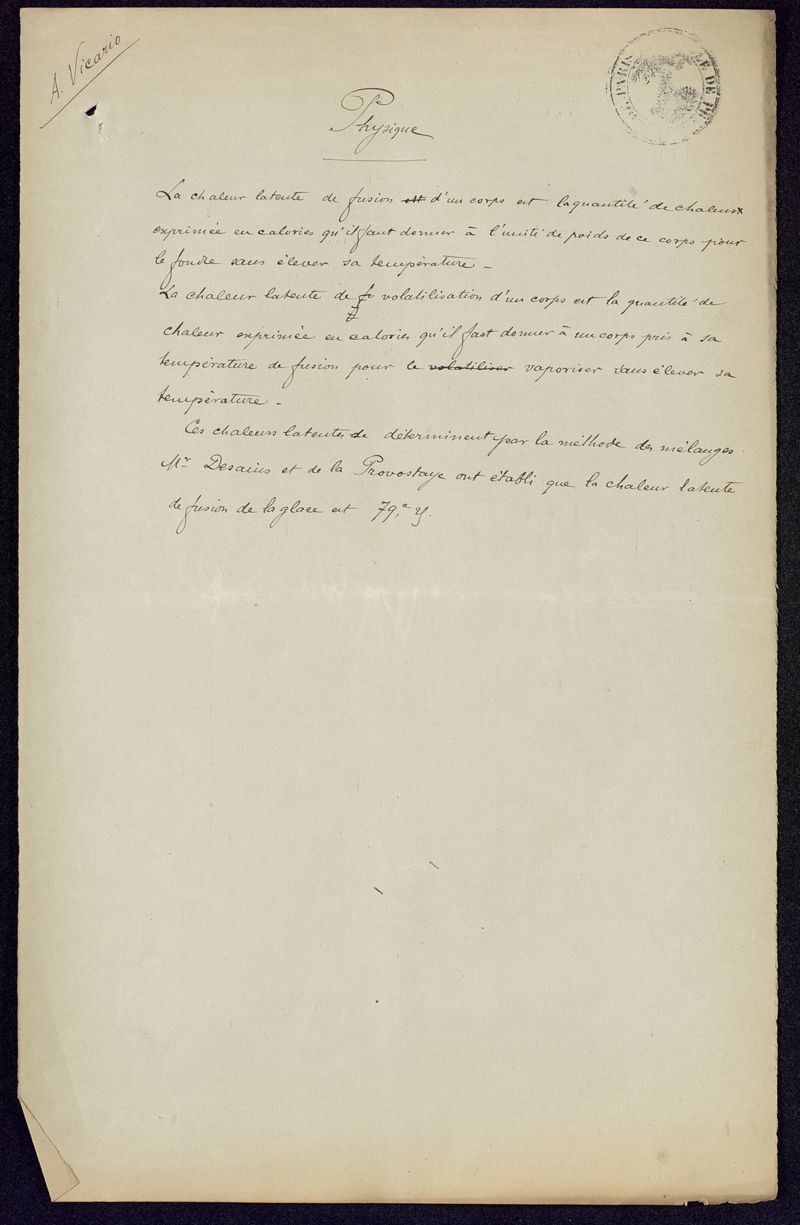 A. Vicario
PARIS
E DE PH
Physique
La chaleur latente de fusion est d'un corps est la quantité de chaleur
exprimée en calories qu'il faut donner à l'unité de poids de ce corps pour
le fondre sans élever sa température –
La chaleur latente de volatilisation d'un corps est la quantité de
chaleur exprimée en calories qu'il faut donner à un corps pris à sa
température de fusion pour le volatiliser vaporiser sans élever sa
température –
Ces chaleurs latentes de déterminent par la méthode des mélanges.
Mr Desains et de la Provostaye ont établi que la chaleur latente
de fusion de la glace est 79,c